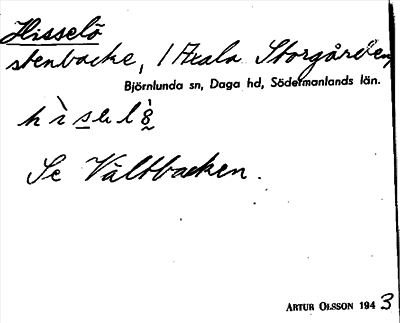 Hisselö
stenbacke, / Axala Storgården,
Björnlunda sn, Daga hd, Södermanlands län.
Se Vältbacken.
ARTUR OLSSON 1943